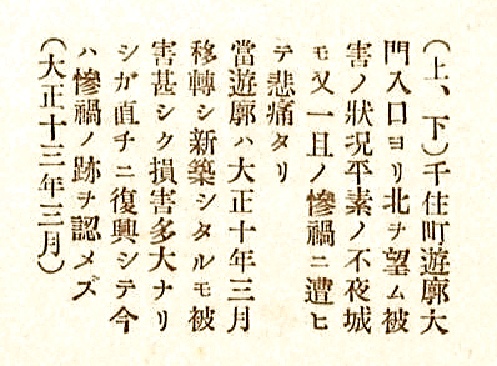 (上、下)千住町遊廓大
門入口ヨリ北ヲ望ム被
害ノ狀況平素ノ不夜城
モ又一旦ノ慘禍ニ遭ヒ
テ悲痛タリ
當遊廓ハ大正十年三月
移轉シ新築シタルモ被
害甚シク損害多大ナリ
シガ直チニ復興シテ今
ハ慘禍ノ跡ヲ認メズ
(大正十三年三月)